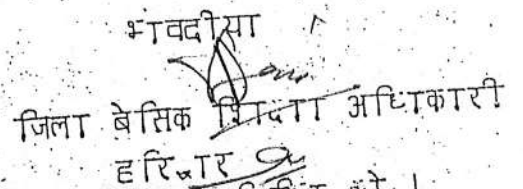 भवदीया
जिला बेसिक शिक्षा अधिकारी
हरिद्वार